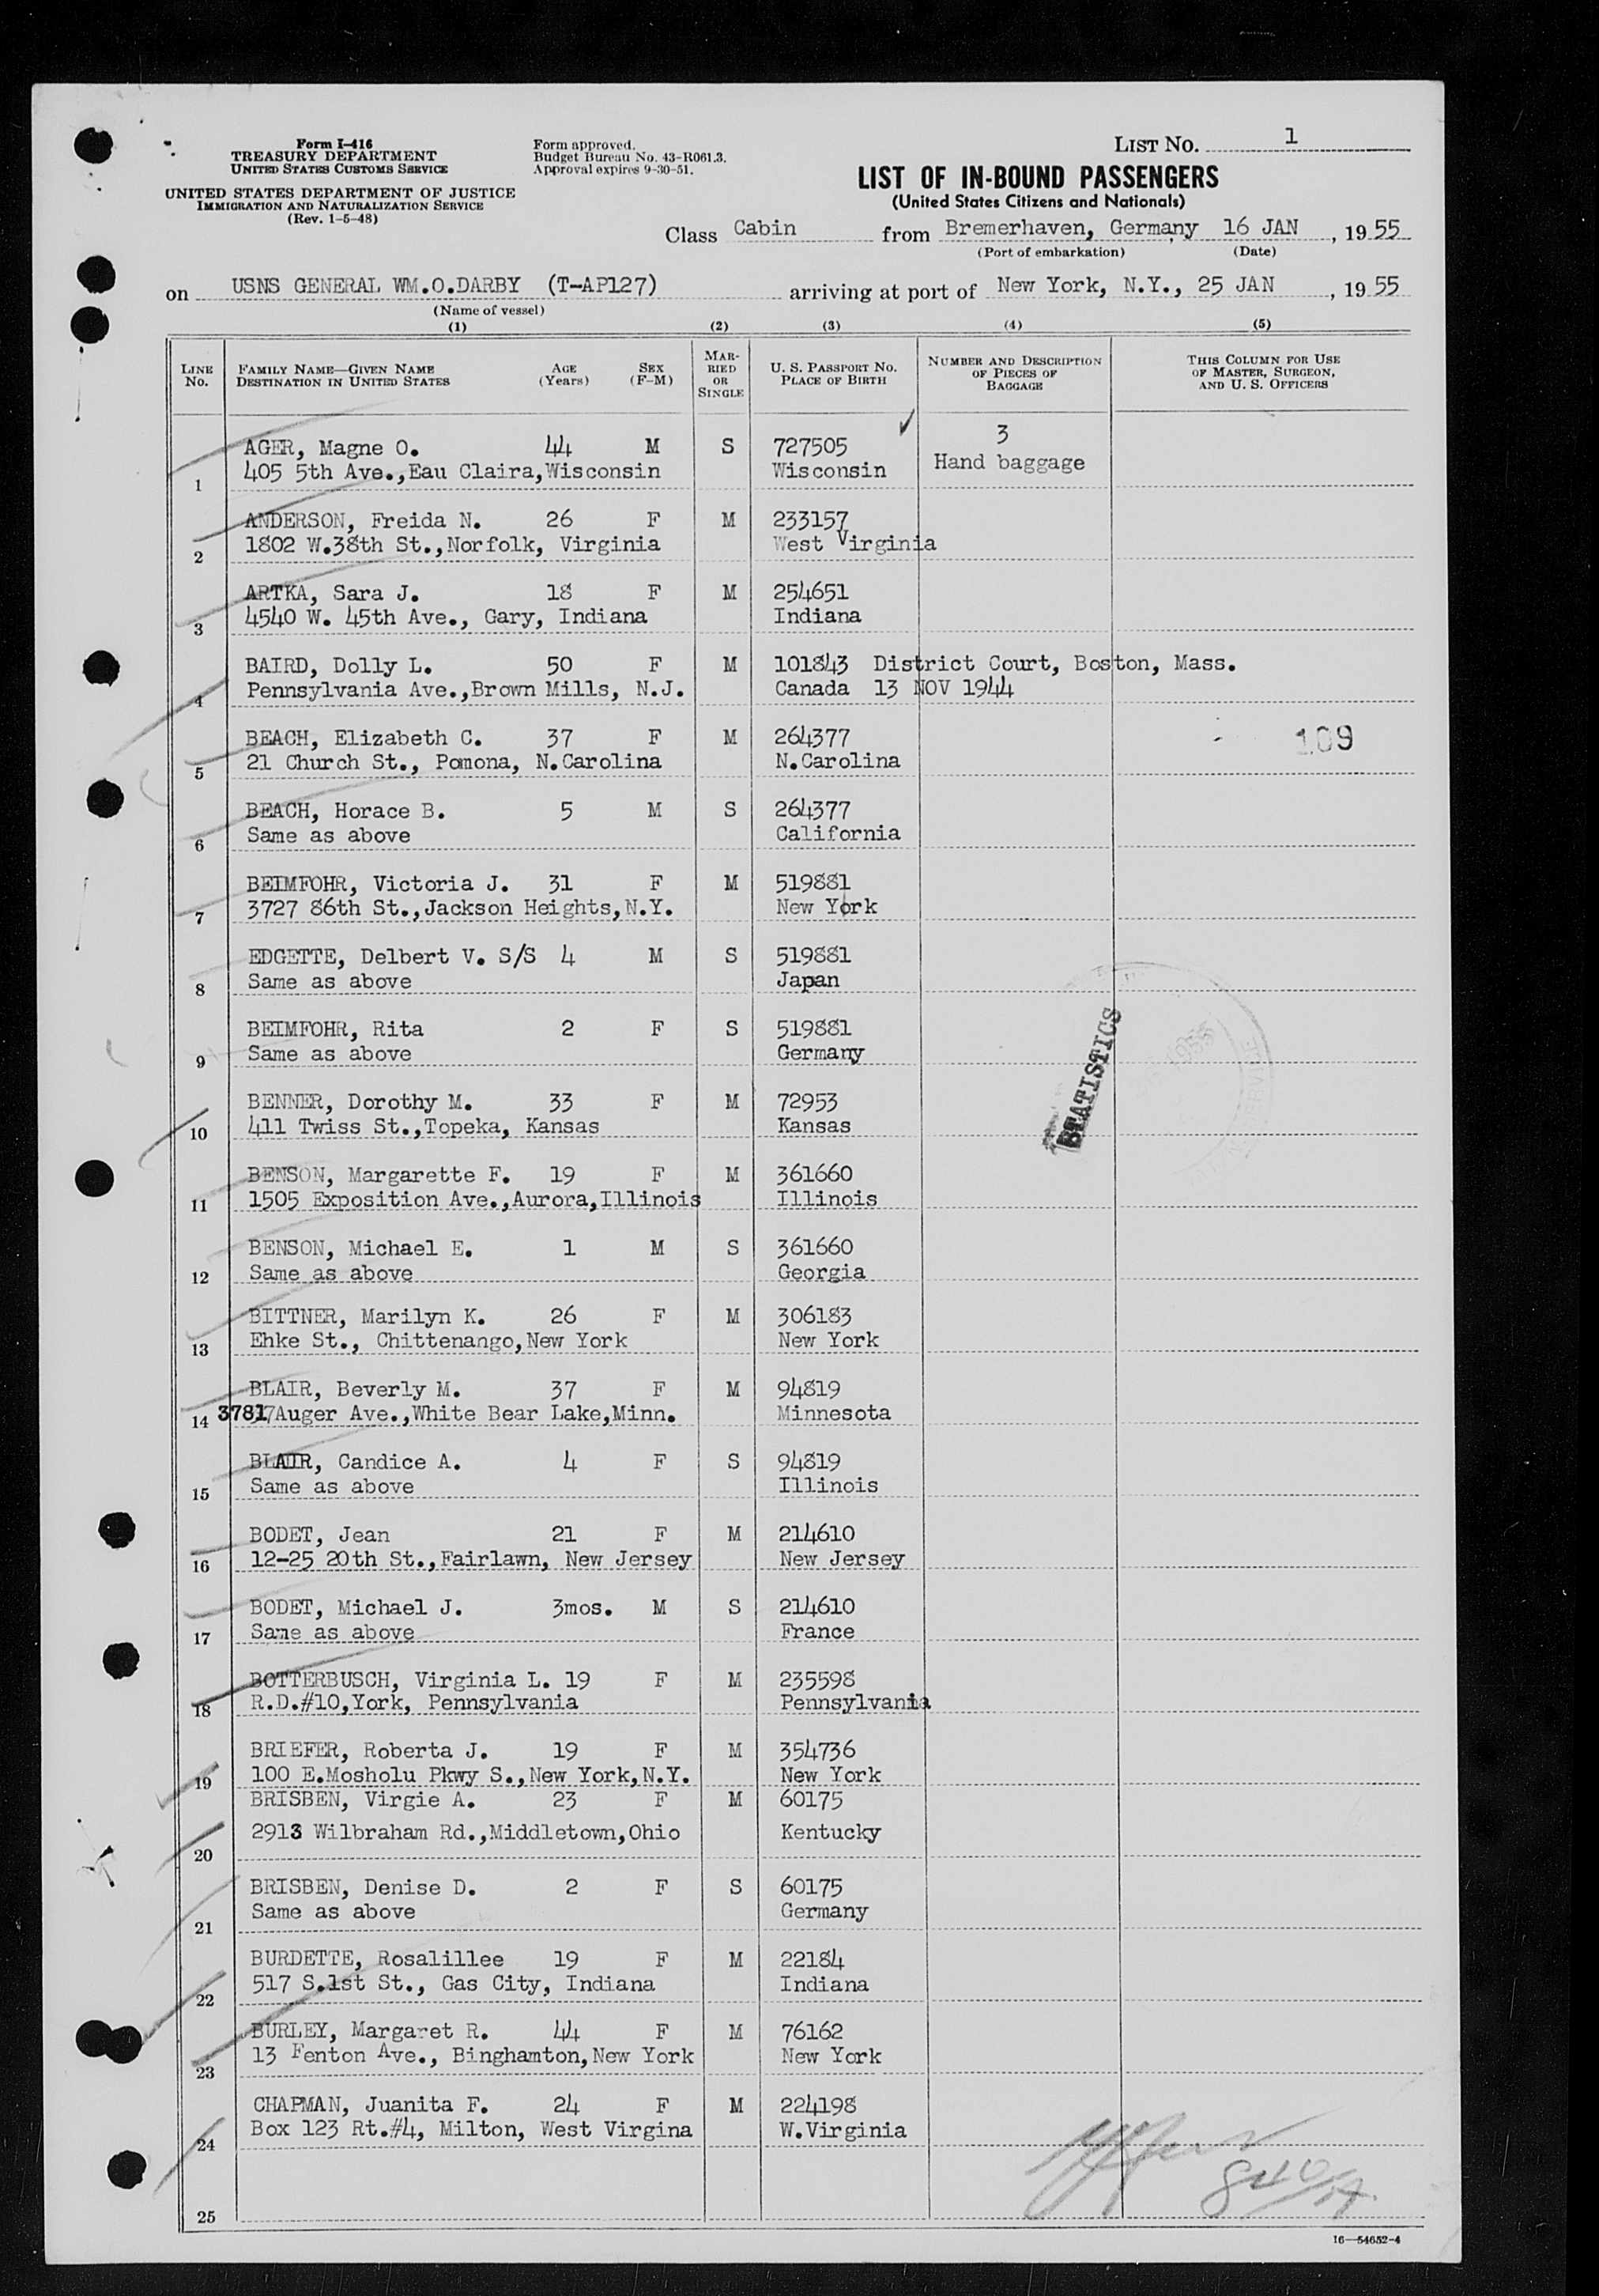 Form I-416
TREASURY DEPARTMENT
UNITED STATES CUSTOMS SERVICE
UNITED STATES DEPARTMENT OF JUSTICE
IMMIGRATION AND NATURALIZATION SERVICE
(Rev. 1-5-48)
Form approved.
Budget Bureau No. 43-R061.3.
Approval expires 9-30-51.
LIST NO. 1
LIST OF IN-BOUND PASSENGERS
(United States Citizens and Nationals)
Class Cabin from Bremerhaven, Germany 16 JAN, 1955
(Port of embarkation) (Date)
on USNS GENERAL WM.O.DARBY (T-AP127) arriving at port of New York, N.Y., 25 JAN, 1955
(Name of vessel)
(1) (2) (3) (4) (5)
LINE No. FAMILY NAME—GIVEN NAME DESTINATION IN UNITED STATES AGE (Years) SEX (F-M) MARRIED OR SINGLE U. S. PASSPORT NO. PLACE OF BIRTH NUMBER AND DESCRIPTION OF PIECES OF BAGGAGE THIS COLUMN FOR USE OF MASTER, SURGEON, AND U. S. OFFICERS
AGER, Magne O. 44 M S 727505 3
1 405 5th Ave.,Eau Claira,Wisconsin Wisconsin Hand baggage
ANDERSON, Freida N. 26 F M 233157
2 1802 W.38th St.,Norfolk, Virginia West Virginia
ARTKA, Sara J. 18 F M 254651
3 4540 W. 45th Ave., Gary, Indiana Indiana
BAIRD, Dolly L. 50 F M 101843 District Court, Boston, Mass.
4 Pennsylvania Ave.,Brown Mills, N.J. Canada 13 NOV 1944
BEACH, Elizabeth C. 37 F M 264377 109
5 21 Church St., Pomona, N.Carolina N.Carolina
BEACH, Horace B. 5 M S 264377
6 Same as above California
BEIMFOHR, Victoria J. 31 F M 519881
7 3727 86th St.,Jackson Heights,N.Y. New York
EDGETTE, Delbert V. S/S 4 M S 519881
8 Same as above Japan
BEIMFOHR, Rita 2 F S 519881
9 Same as above Germany
STATISTICS
BENNER, Dorothy M. 33 F M 72953
10 411 Twiss St.,Topeka, Kansas Kansas
BENSON, Margarette F. 19 F M 361660
11 1505 Exposition Ave.,Aurora,Illinois Illinois
BENSON, Michael E. 1 M S 361660
12 Same as above Georgia
BITTNER, Marilyn K. 26 F M 306183
13 Ehke St., Chittenango,New York New York
BLAIR, Beverly M. 37 F M 94819
14 3781 Auger Ave.,White Bear Lake,Minn. Minnesota
BLAIR, Candice A. 4 F S 94819
15 Same as above Illinois
BODET, Jean 21 F M 214610
16 12-25 20th St.,Fairlawn, New Jersey New Jersey
BODET, Michael J. 3mos. M S 214610
17 Same as above France
BOTTERBUSCH, Virginia L. 19 F M 235598
18 R.D.#10,York, Pennsylvania Pennsylvania
BRIEFER, Roberta J. 19 F M 354736
19 100 E.Mosholu Pkwy S.,New York,N.Y. New York
BRISBEN, Virgie A. 23 F M 60175
20 2913 Wilbraham Rd.,Middletown,Ohio Kentucky
BRISBEN, Denise D. 2 F S 60175
21 Same as above Germany
BURDETTE, Rosalillee 19 F M 22184
22 517 S.1st St., Gas City, Indiana Indiana
BURLEY, Margaret R. 44 F M 76162
23 13 Fenton Ave., Binghamton,New York New York
CHAPMAN, Juanita F. 24 F M 224198
24 Box 123 Rt.#4, Milton, West Virgina W.Virginia
25
16—54652-4